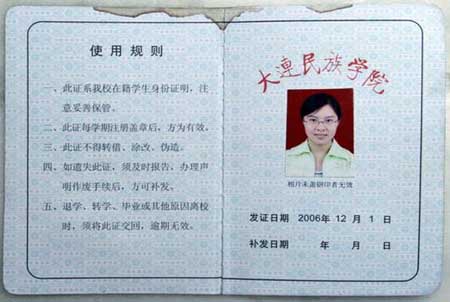 使用规则
一、此证系我校在籍学生身份证明，注
意妥善保管。
二、此证每学期注册盖章后，方为有效。
三、此证不得转借、涂改、伪造。
四、如遗失此证，须及时报告，办理声
明作废手续后，方可补发。
五、退学、转学、毕业或其他原因离校
时，须将此证交回，逾期无效。
大連民族学院
相片未盖钢印者无效
发证日期 2006年 12 月 1 日
补发日期 年 月 日